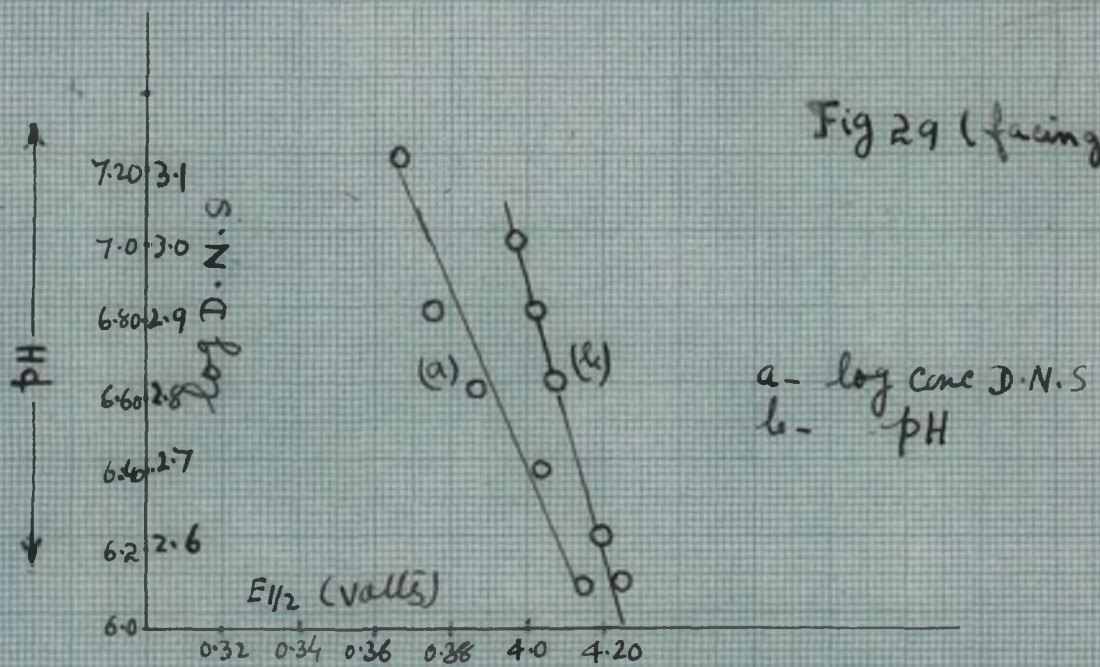 Fig 29 (facing
pH
log D.N.S
7.20 3.1
7.0 3.0
6.80 2.9
6.60 2.8
6.40 2.7
6.2 2.6
6.0
(a)
(b)
a - log conc D.N.S
b - pH
E1/2 (volts)
0.32 0.34 0.36 0.38 4.0 4.20